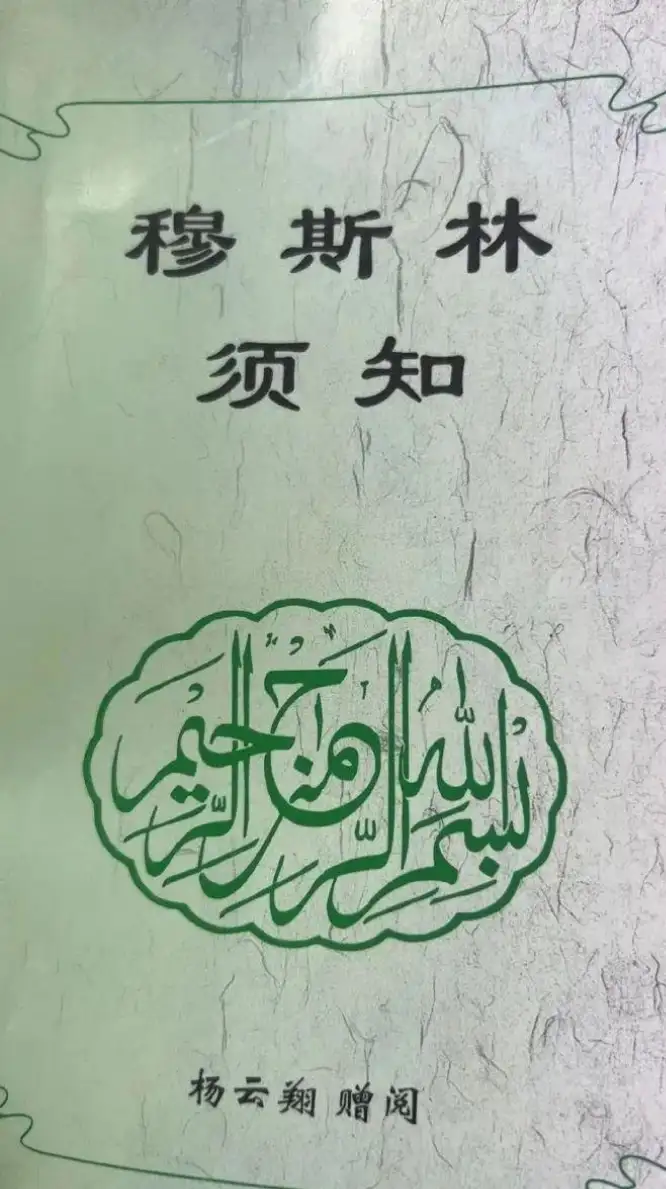 穆斯林
须知
بسم الله الرحمن الرحيم
杨云翔 赠阅